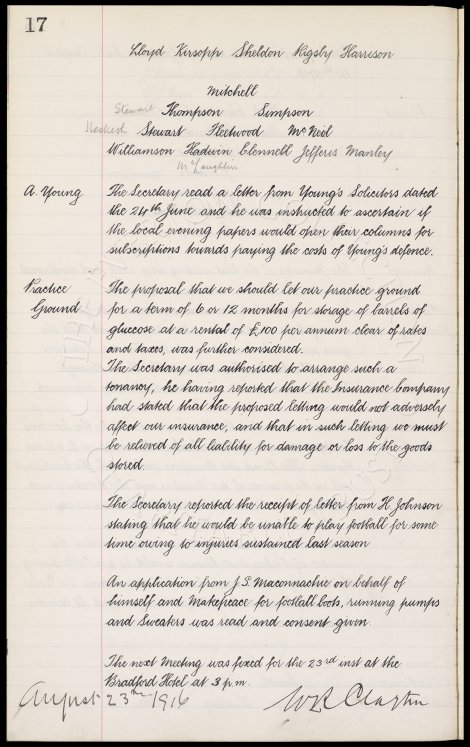 17
Lloyd Kirsopp Sheldon Rigsby Harrison
Mitchell
Stewart Thompson Simpson
Stewart Fleetwood McNeil
Williamson Hadwin Clennell Jefferis Manley
McLaughlin
A. Young
The Secretary read a letter from Young's Solicitors dated
the 24th June and he was instructed to ascertain if
the local evening papers would open their columns for
subscriptions towards paying the costs of Young's defence.
Practice
Ground
The proposal that we should let our practice ground
for a term of 6 or 12 months for storage of barrels of
glucose at a rental of £100 per annum clear of rates
and taxes, was further considered.
The Secretary was authorised to arrange such a
tenancy, he having reported that the Insurance Company
had stated that the proposed letting would not adversely
affect our insurance, and that in such letting we must
be relieved of all liability for damage or loss to the goods
stored.
The Secretary reported the receipt of letter from H. Johnson
stating that he would be unable to play football for some
time owing to injuries sustained last season
An application from J. S. Maconnachie on behalf of
himself and Makepeace for football boots, running pumps
and Sweaters was read and consent given.
The next Meeting was fixed for the 23rd inst at the
Bradford Hotel at 3 p.m.
August 23rd 1916
W R Clayton